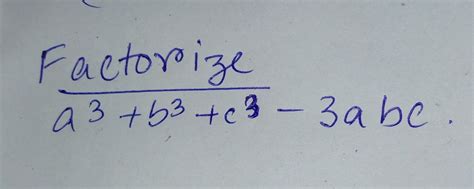 Factorize
a³ + b³ + c³ - 3abc.